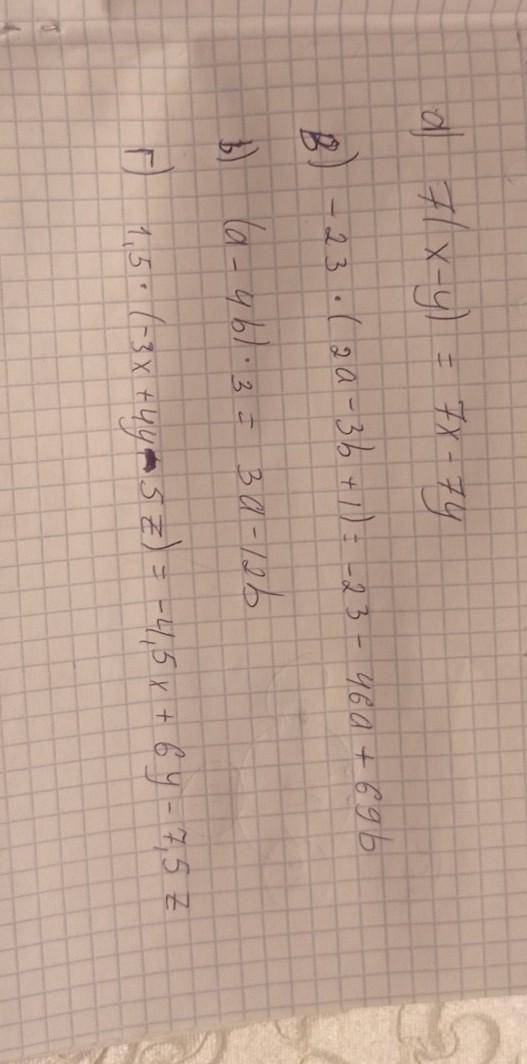 а) 7(x-y) = 7x-7y
В) -23 · (2a-3b+1) = -23 - 46a + 69b
б) (a-4b) · 3 = 3a-12b
Г) 1,5 · (-3x+4y-5z) = -4,5x + 6y - 7,5z